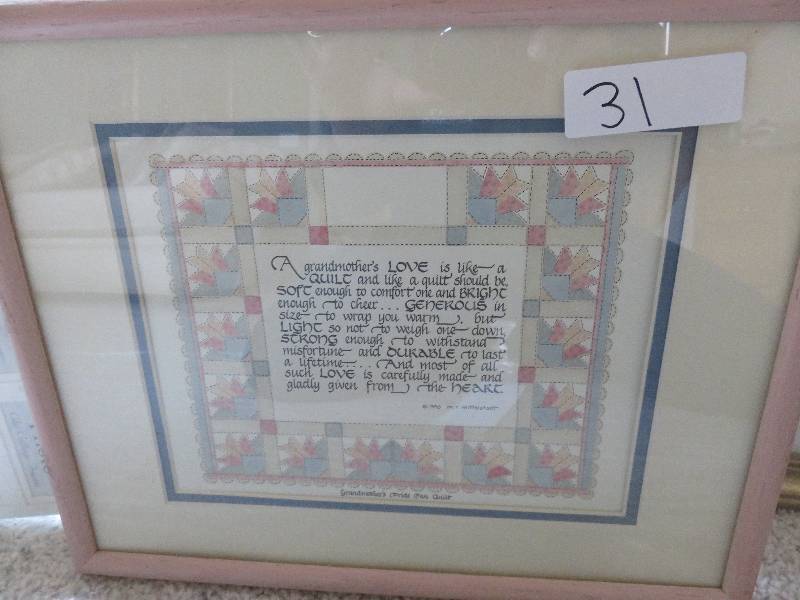 31
A grandmother's LOVE is like a
QUILT and like a quilt should be,
SOFT enough to comfort one and BRIGHT
enough to cheer... GENEROUS in
size to wrap you warm, but
LIGHT so not to weigh one down,
STRONG enough to withstand
misfortune and DURABLE to last
a lifetime... And most of all
such LOVE is carefully made and
gladly given from the HEART
Grandmother's Pride Fan Quilt